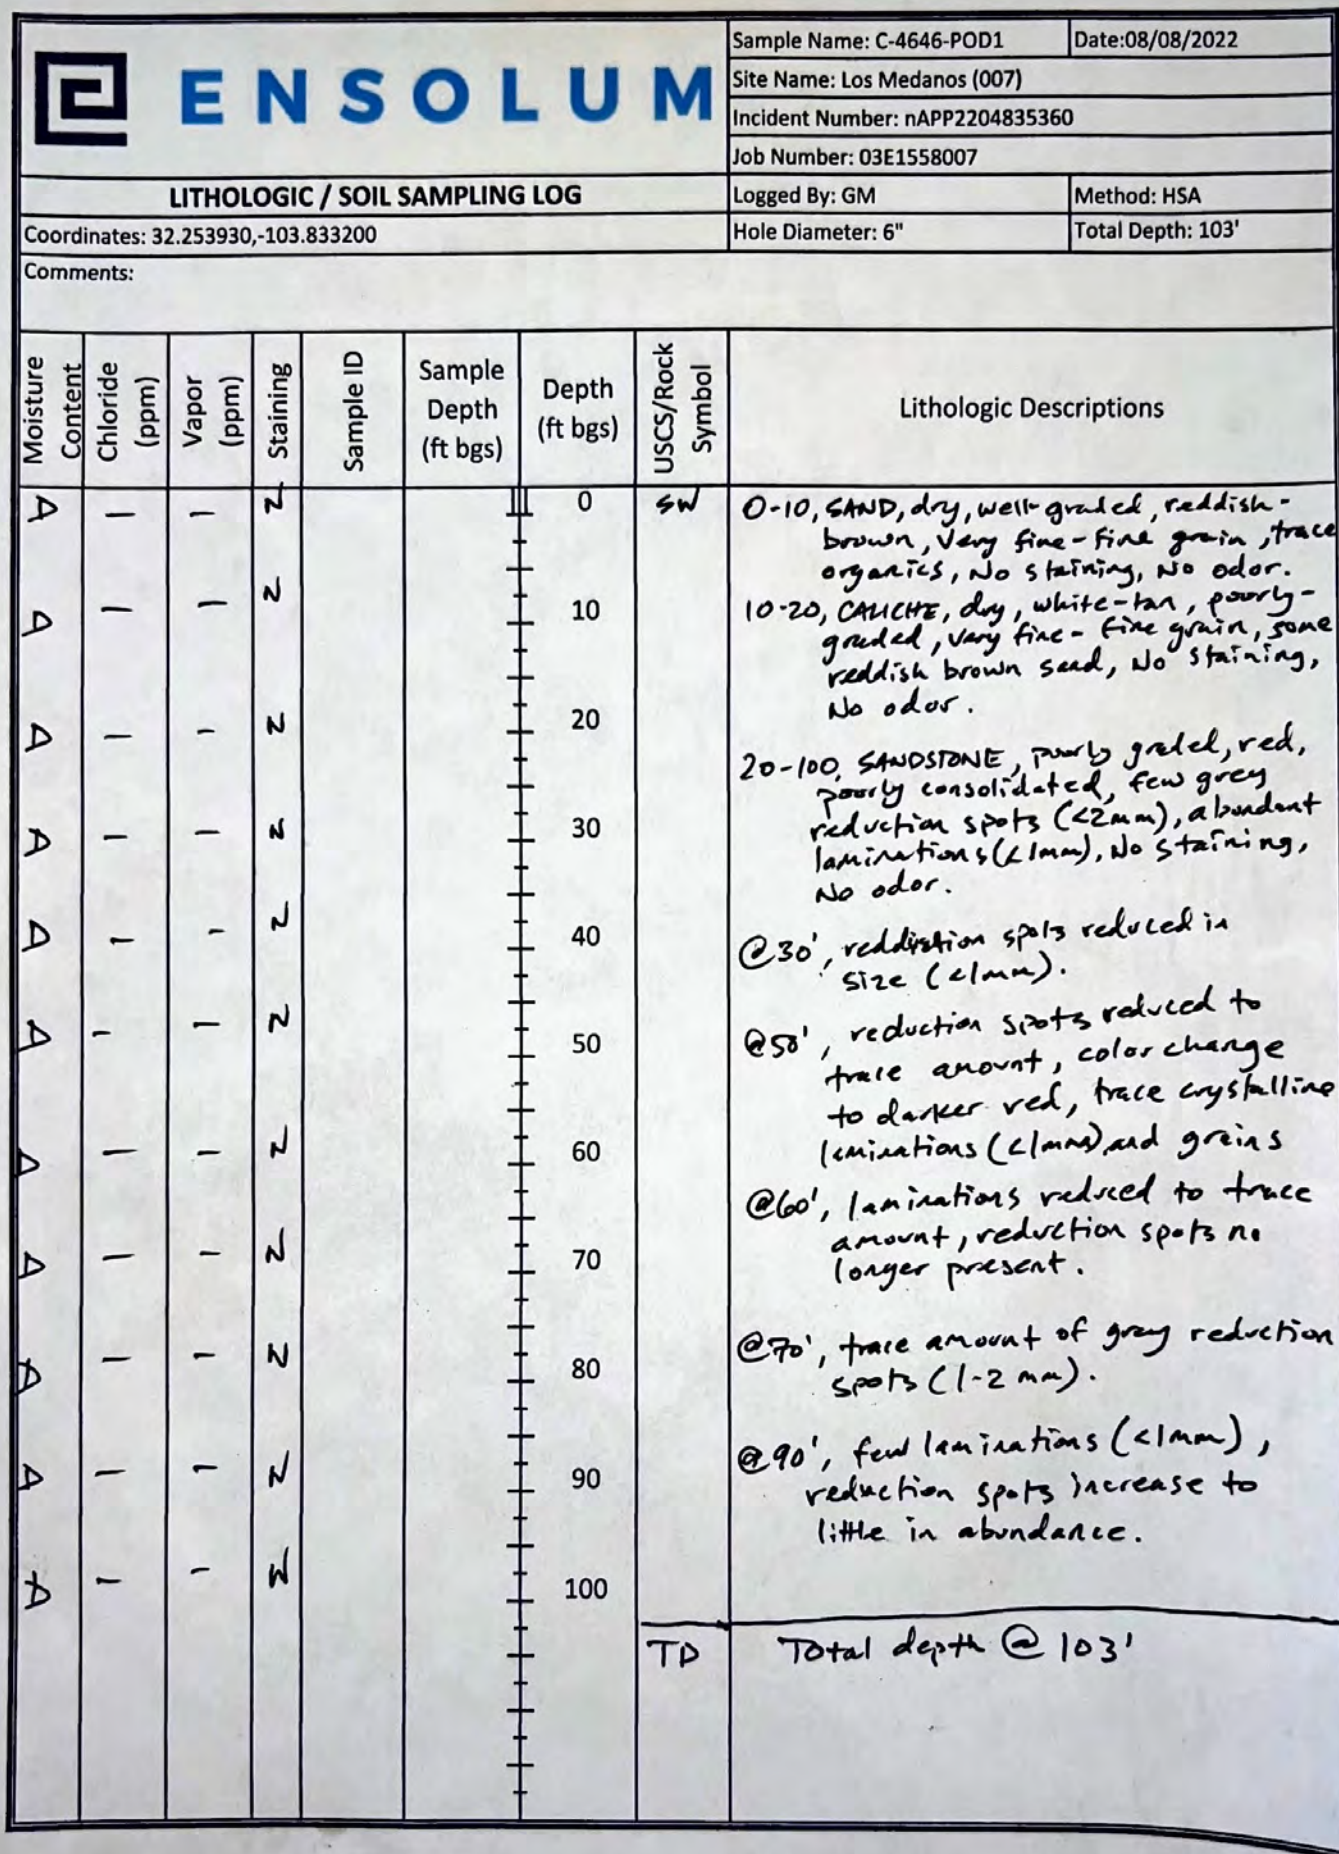 ENSOLUM
Sample Name: C-4646-POD1
Date:08/08/2022
Site Name: Los Medanos (007)
Incident Number: nAPP2204835360
Job Number: 03E1558007
LITHOLOGIC / SOIL SAMPLING LOG
Logged By: GM
Method: HSA
Coordinates: 32.253930,-103.833200
Hole Diameter: 6"
Total Depth: 103'
Comments:
Moisture
Content
Chloride
(ppm)
Vapor
(ppm)
Staining
Sample ID
Sample
Depth
(ft bgs)
Depth
(ft bgs)
USCS/Rock
Symbol
Lithologic Descriptions
D - - N 0 SW
0-10, SAND, dry, well-graded, reddish-
brown, very fine-fine grain, trace
organics, No staining, No odor.
D - - N 10
10-20, CALICHE, dry, white-tan, poorly-
graded, very fine-fine grain, some
reddish brown sand, No staining,
No odor.
D - - N 20
20-100, SANDSTONE, poorly graded, red,
poorly consolidated, few grey
reduction spots (<2mm), abundant
laminations (<1mm), No staining,
No odor.
D - - N 30
D - - N 40
@30', spots reduced in
size (<1mm).
D - - N 50
@50', reduction spots reduced to
trace amount, color change
to darker red, trace crystalline
laminations (<1mm) and grains
D - - N 60
@60', laminations reduced to trace
amount, reduction spots no
longer present.
D - - N 70
@70', trace amount of gray reduction
spots (1-2 mm).
D - - N 80
@90', few laminations (<1mm),
reduction spots increase to
little in abundance.
D - - N 90
D - - N 100
TD Total depth @ 103'